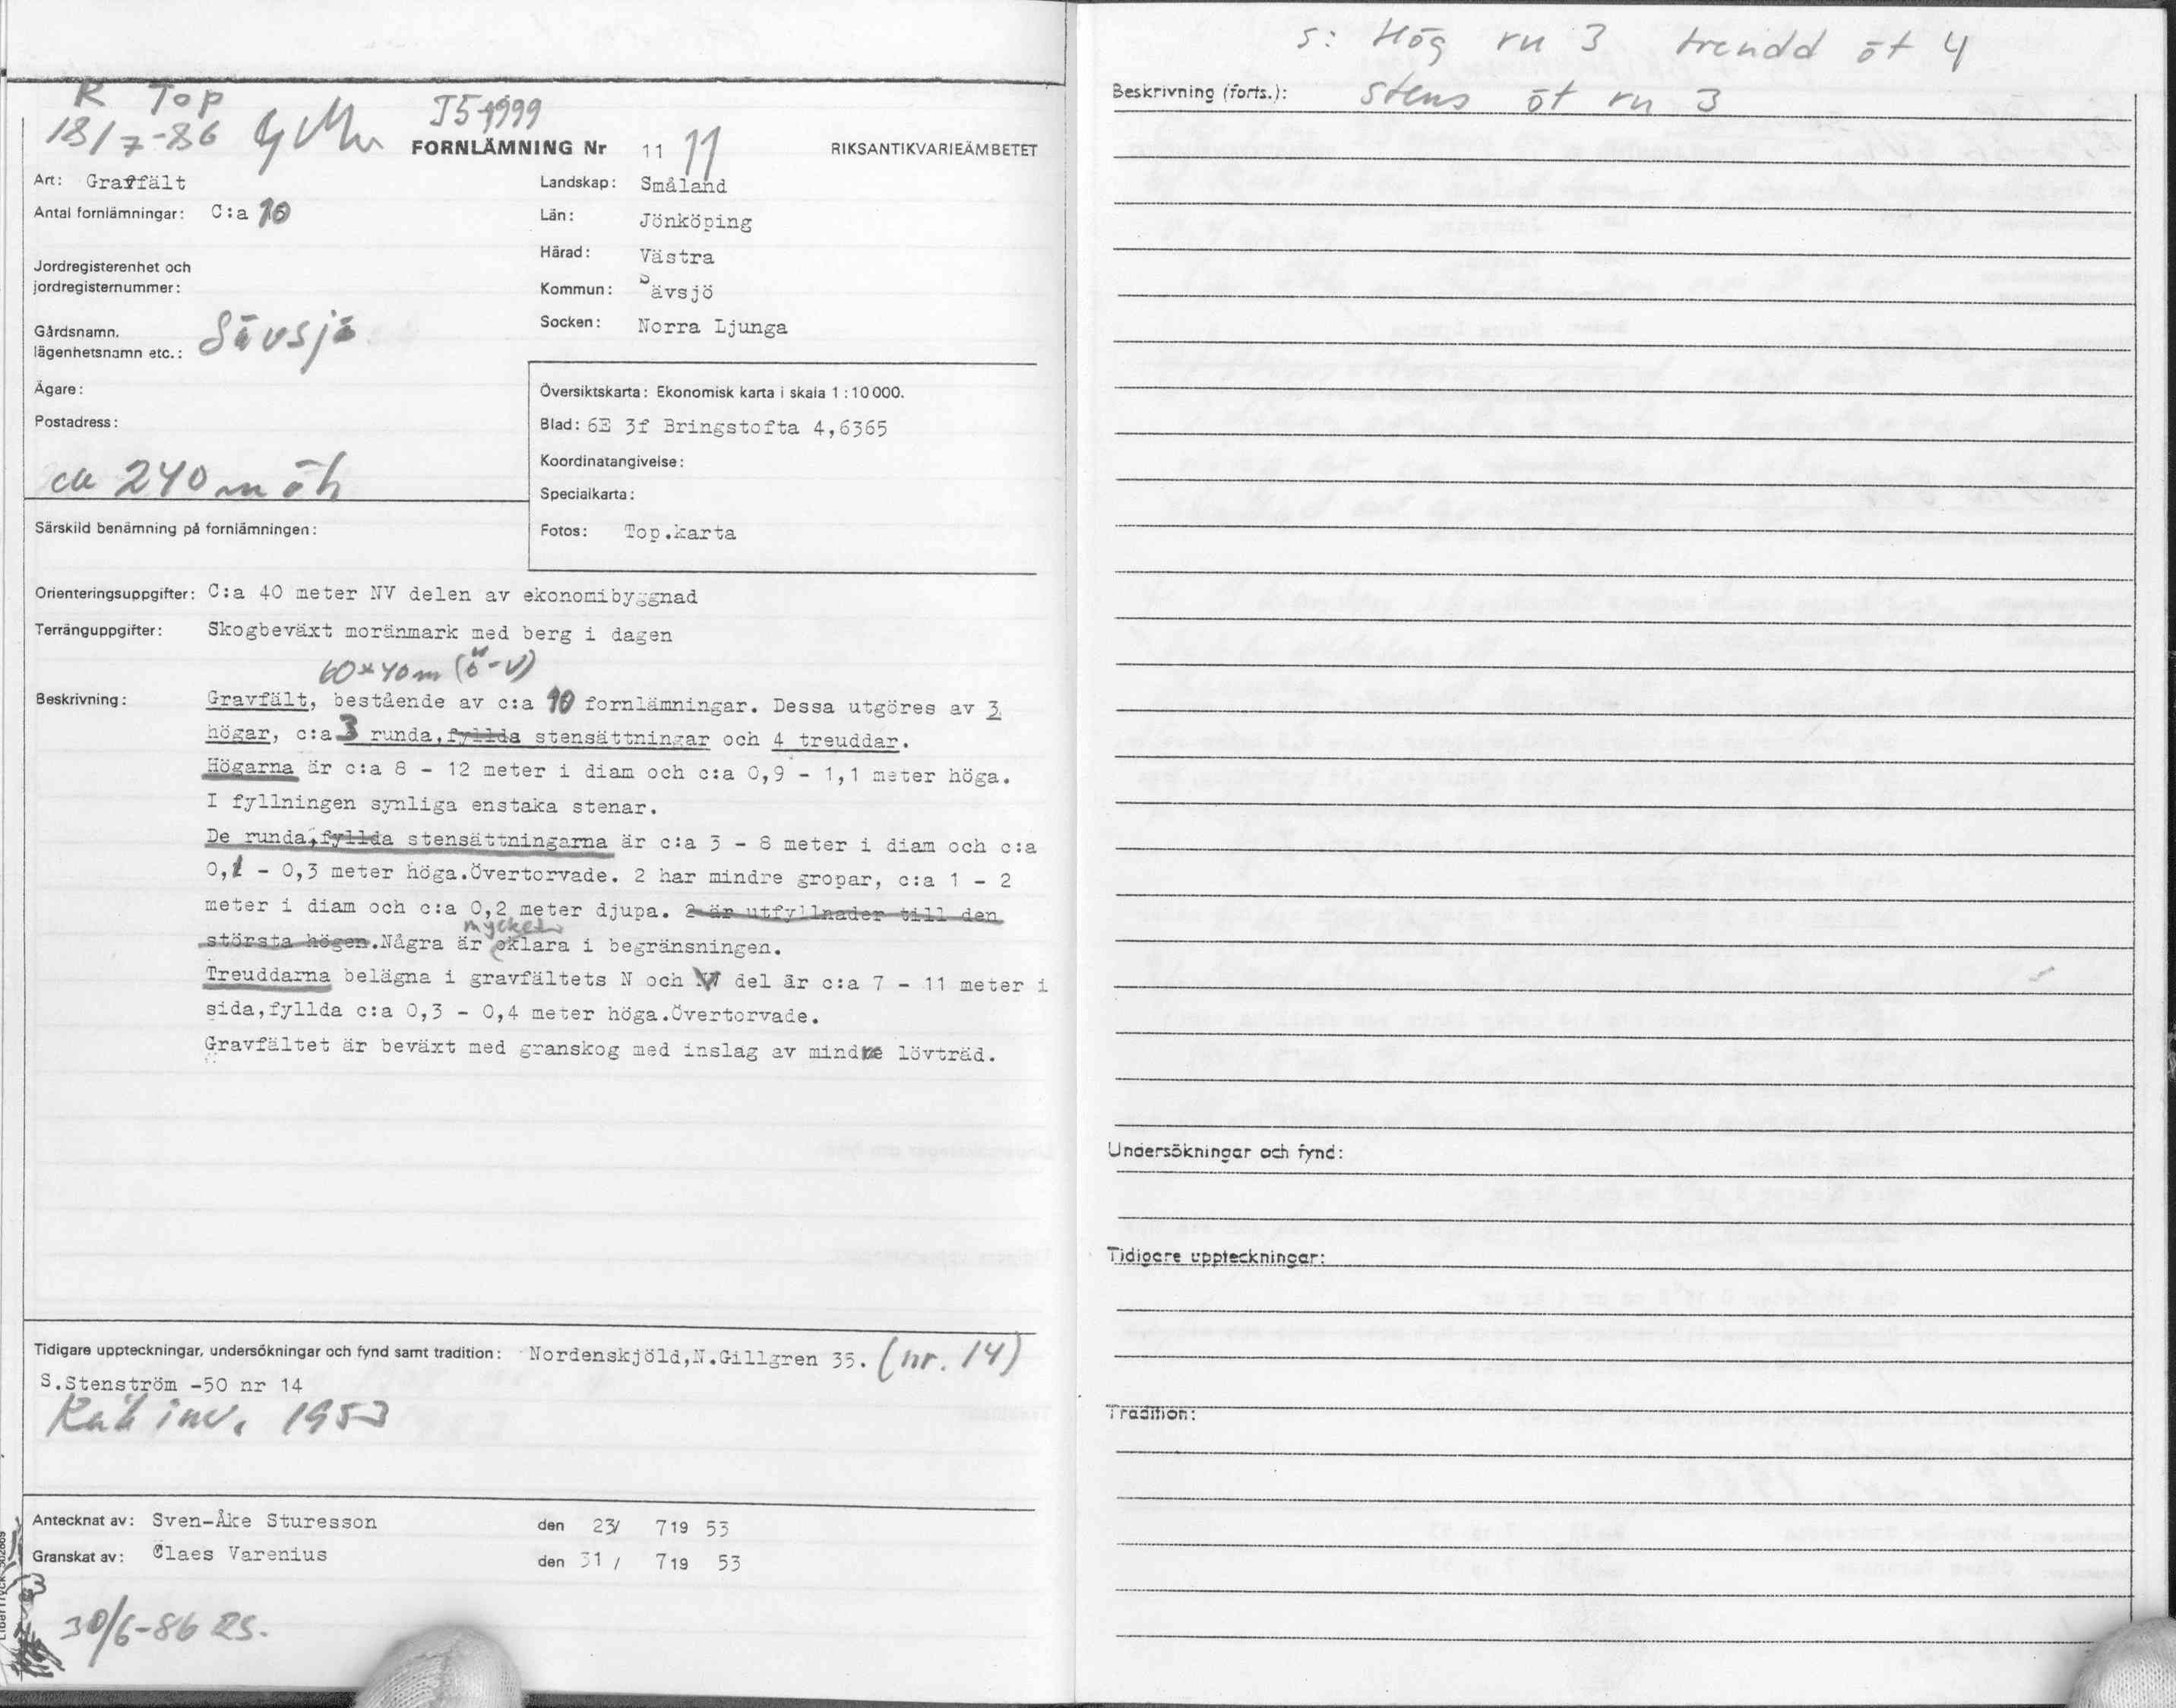 R Top
18/7-86
J5 1999
FORNLÄMNING Nr 11 11
RIKSANTIKVARIEÄMBETET
Art: Gravfält
Antal fornlämningar: C:a 10
Jordregisterenhet och
jordregisternummer:
Gårdsnamn,
lägenhetsnamn etc.: Sävsjö
Ägare:
Postadress:
ca 240 m öh
Särskild benämning på fornlämningen:
Landskap: Småland
Län: Jönköping
Härad: Västra
Kommun: Sävsjö
Socken: Norra Ljunga
Översiktskarta: Ekonomisk karta i skala 1:10000.
Blad: 6E 3f Bringstofta 4,6365
Koordinatangivelse:
Specialkarta:
Fotos: Top.karta
Orienteringsuppgifter: C:a 40 meter NV delen av ekonomibyggnad
Terränguppgifter: Skogbeväxt moränmark med berg i dagen
60x40m (Ö-V)
Beskrivning: Gravfält, bestående av c:a 10 fornlämningar. Dessa utgöres av 3
högar, c:a 3 runda, fyllda stensättningar och 4 treuddar.
Högarna är c:a 8 - 12 meter i diam och c:a 0,9 - 1,1 meter höga.
I fyllningen synliga enstaka stenar.
De runda, fyllda stensättningarna är c:a 3 - 8 meter i diam och c:a
0,1 - 0,3 meter höga.Övertorvade. 2 har mindre gropar, c:a 1 - 2
meter i diam och c:a 0,2 meter djupa. 2 är utfyllnader till den
största högen.Några är mycket oklara i begränsningen.
Treuddarna belägna i gravfältets N och V del är c:a 7 - 11 meter i
sida,fyllda c:a 0,3 - 0,4 meter höga.Övertorvade.
Gravfältet är beväxt med granskog med inslag av mindre lövträd.
Tidigare uppteckningar, undersökningar och fynd samt tradition: Nordenskjöld,N.Gillgren 35. (nr. 14)
S.Stenström -50 nr 14
Raä inv. 1953
Antecknat av: Sven-Åke Sturesson den 23/ 719 53
Granskat av: Claes Varenius den 31 / 719 53
30/6-86 RS.
s: Hög ru 3 treudd öt 4
Beskrivning (forts.): Stens öt ru 3
Undersökningar och fynd:
Tidigare uppteckningar:
Tradition: